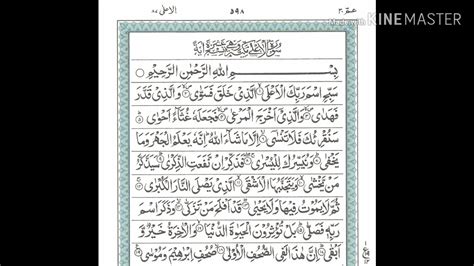 Made with KINEMASTER
عمّ ٣٠ ٥٩٨ الاعلى ٨٧
بِسْمِ اللهِ الرَّحْمٰنِ الرَّحِيْمِ
سَبِّحِ اسْمَ رَبِّكَ الْاَعْلَى ۙ الَّذِيْ خَلَقَ فَسَوّٰى ۙ وَالَّذِيْ قَدَّرَ
فَهَدٰى ۙ وَالَّذِيْ اَخْرَجَ الْمَرْعٰى ۙ فَجَعَلَهٗ غُثَآءً اَحْوٰى ۙ
سَنُقْرِئُكَ فَلَا تَنْسٰى ۙ اِلَّا مَا شَآءَ اللهُ ۚ اِنَّهٗ يَعْلَمُ الْجَهْرَ وَمَا
يَخْفٰى ۙ وَنُيَسِّرُكَ لِلْيُسْرٰى ۙ فَذَكِّرْ اِنْ نَّفَعَتِ الذِّكْرٰى ۙ سَيَذَّكَّرُ
مَنْ يَّخْشٰى ۙ وَيَتَجَنَّبُهَا الْاَشْقَى ۙ الَّذِيْ يَصْلَى النَّارَ الْكُبْرٰى ۙ
ثُمَّ لَا يَمُوْتُ فِيْهَا وَلَا يَحْيٰى ۙ قَدْ اَفْلَحَ مَنْ تَزَكّٰى ۙ وَذَكَرَ اسْمَ
رَبِّهٖ فَصَلّٰى ۙ بَلْ تُؤْثِرُوْنَ الْحَيٰوةَ الدُّنْيَا ۙ وَالْاٰخِرَةُ خَيْرٌ وَّ
اَبْقٰى ۙ اِنَّ هٰذَا لَفِى الصُّحُفِ الْاُوْلٰى ۙ صُحُفِ اِبْرٰهِيْمَ وَمُوْسٰى